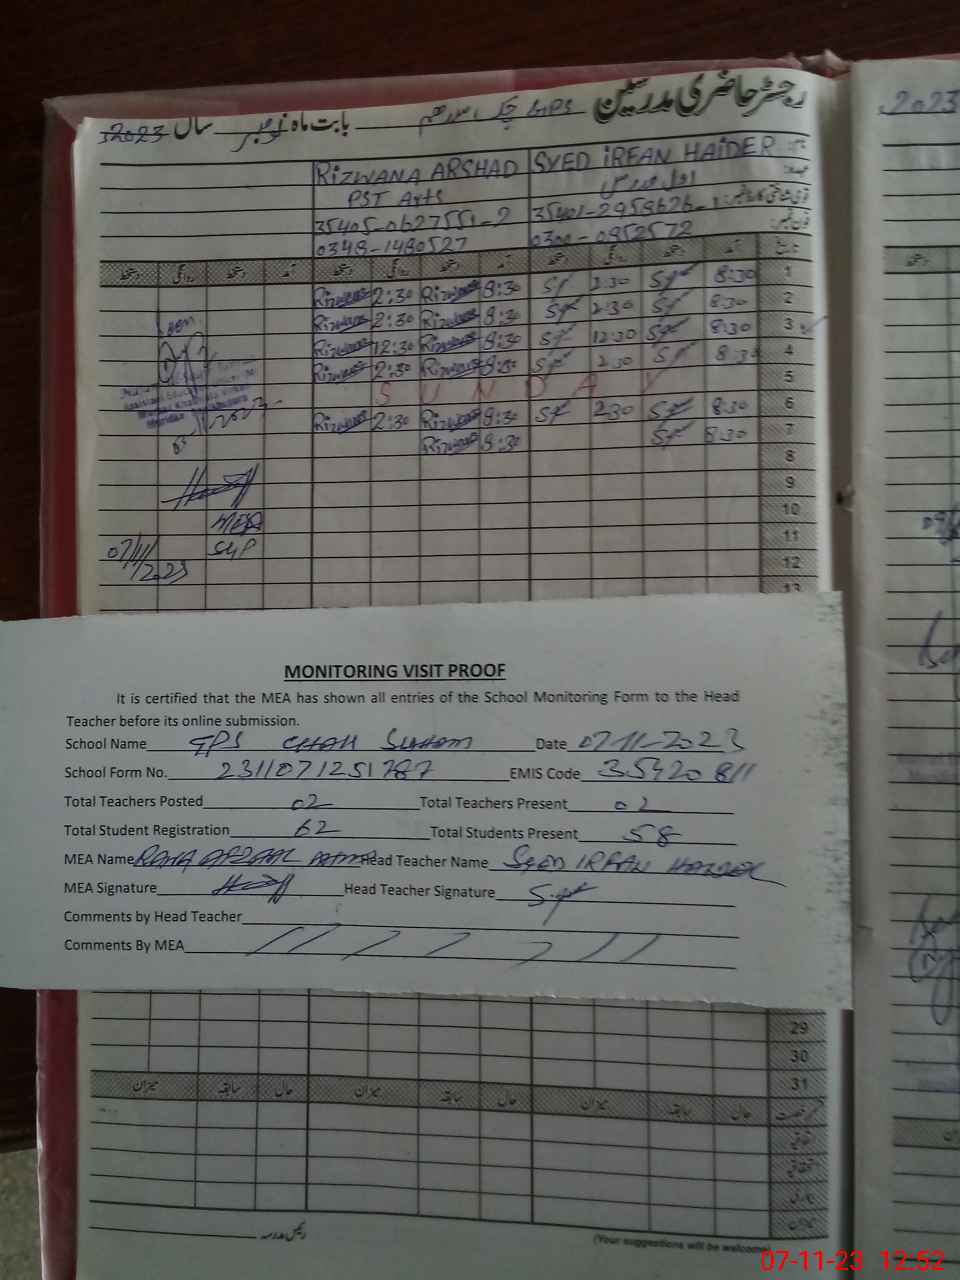 رجسٹر حاضری مدرسین GPS چک سدھم بابت ماہ نومبر سال 2023
2023
RIZWANA ARSHAD SYED IRFAN HAIDER
PST Arts اول مدرس
35405-0627551-2 35401-2958626-1
0348-1480527 0300-0852572
دستخط روانگی دستخط آمد دستخط روانگی دستخط آمد دستخط روانگی دستخط آمد تاریخ
Rizwana 2:30 Rizwana 8:30 2:30 8:30 1
Rizwana 2:30 Rizwana 8:30 2:30 8:30 2
Rizwana 12:30 Rizwana 8:30 12:30 8:30 3
Rizwana 2:30 Rizwana 8:30 2:30 8:30 4
SUNDAY 5
Rizwana 2:30 Rizwana 8:30 2:30 8:30 6
Rizwana 8:30 8:30 7
Seen
8
9
MEA 10
07/11/2023 SKP 11
12
13
MONITORING VISIT PROOF
It is certified that the MEA has shown all entries of the School Monitoring Form to the Head
Teacher before its online submission.
School Name GPS CHAH Date 07-11-2023
School Form No. 2311071251787 EMIS Code 35420811
Total Teachers Posted 02 Total Teachers Present 02
Total Student Registration 62 Total Students Present 58
MEA Name RANA AFZAAL Head Teacher Name SYED IRFAN HAIDER
MEA Signature Head Teacher Signature
Comments by Head Teacher
Comments By MEA
29
30
31
میزان سابقہ حال میزان سابقہ حال میزان سابقہ حال
اتفاقیہ
میزان
رئیس مدرسہ
(Your suggestions will be welcome)
07-11-23 12:52